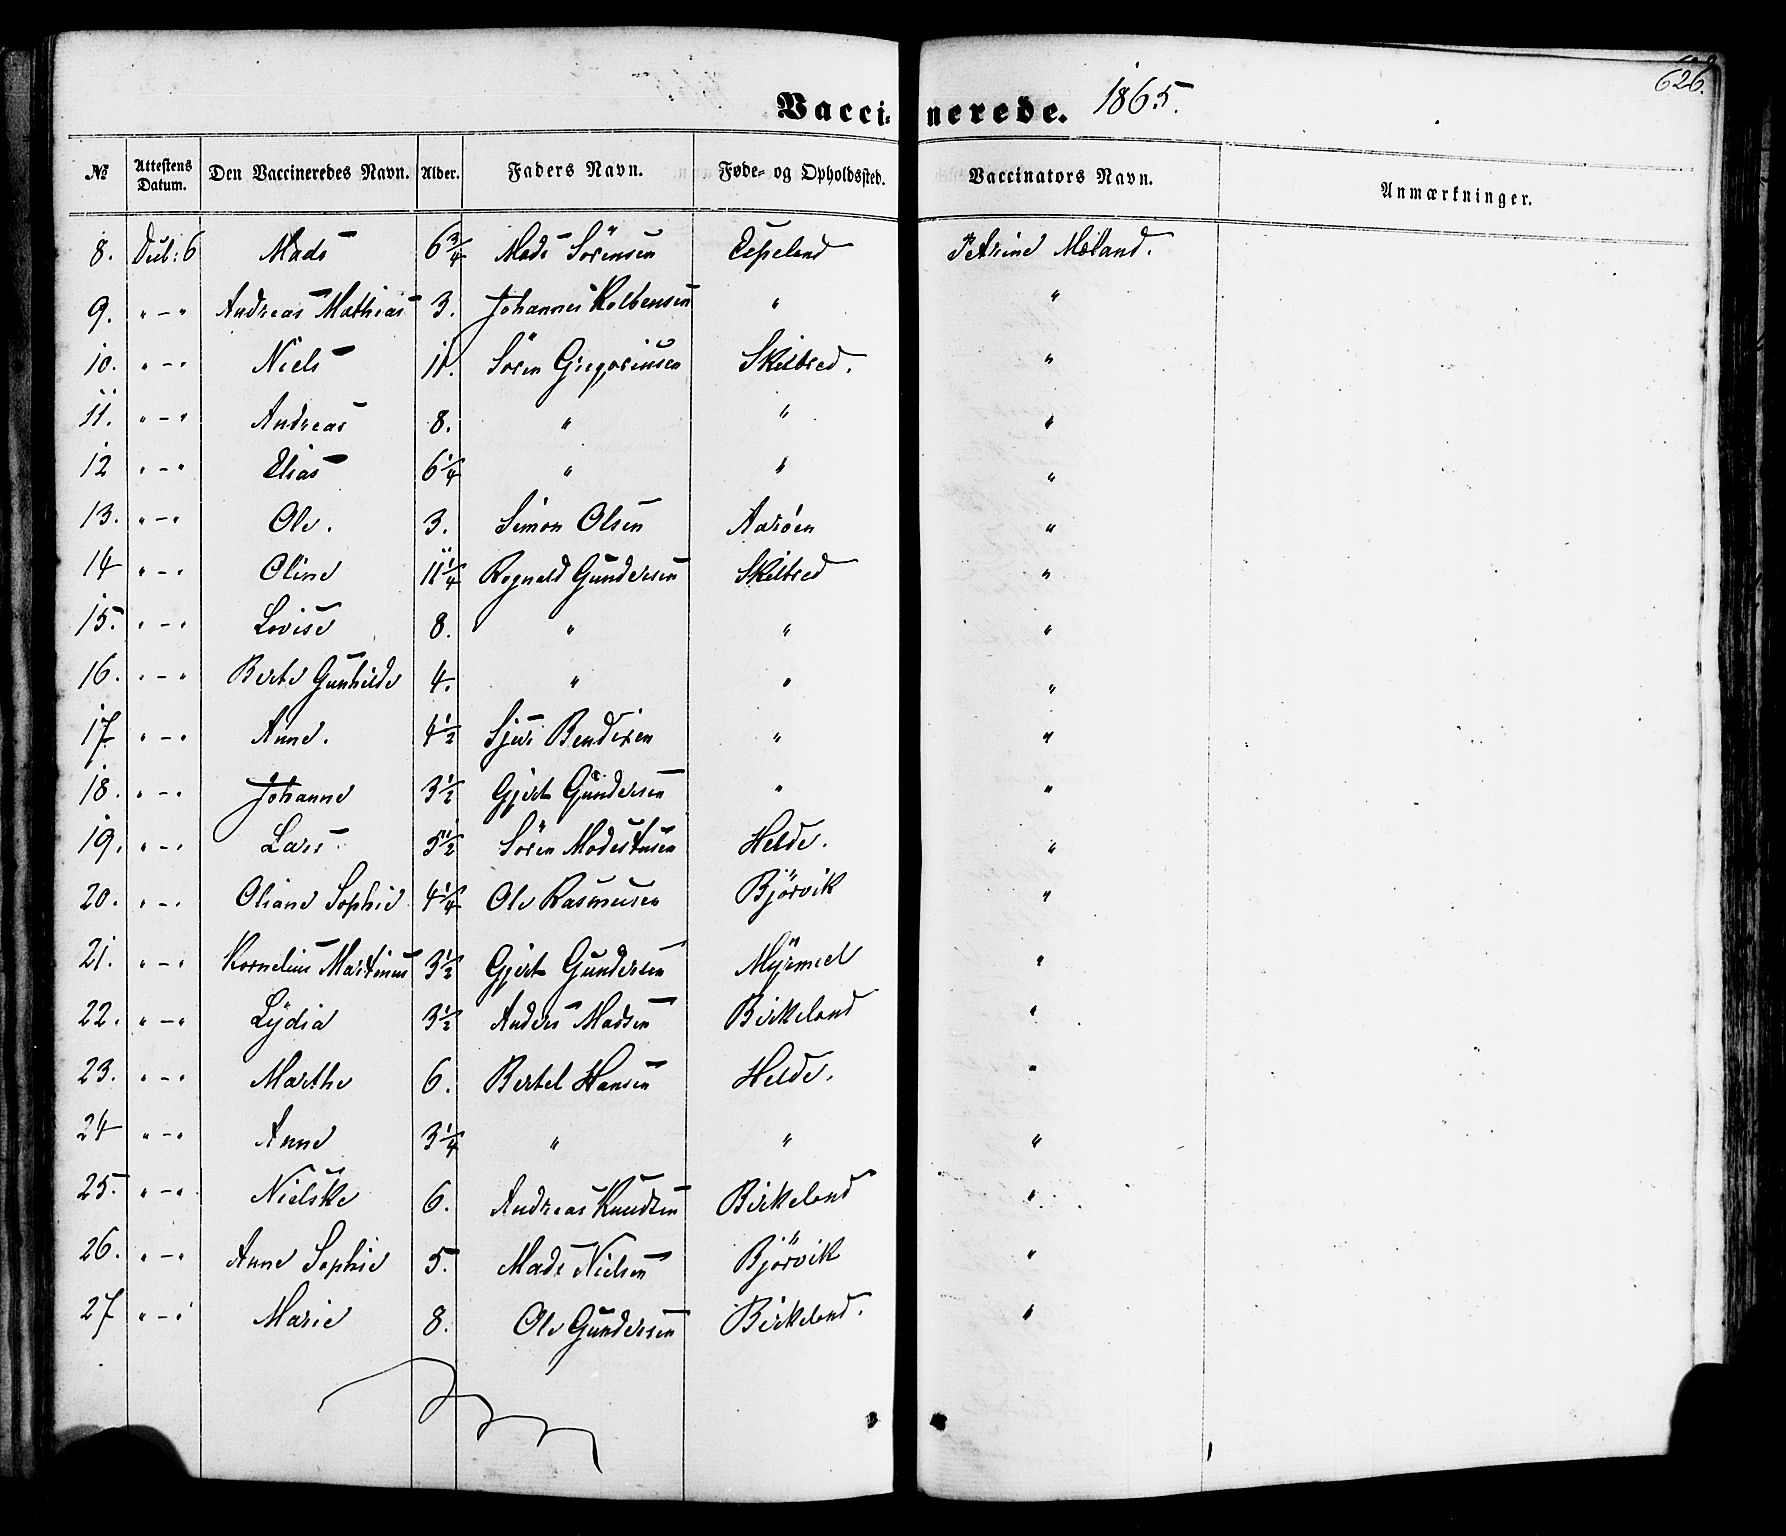 626.
Vaccinerede. 1865.
№ Attestens Datum. Den Vaccineredes Navn. Alder. Faders Navn. Føde- og Opholdssted. Vaccinators Navn. Anmærkninger.
8. 6 Mads 6 3/4 Mads Sörensen Espeland Petrine Mæland.
9. " - " Andreas Mathias 3. Johannes Kolbensen " "
10. " - " Niels 11. Sören Gregoriusen Skilbred. "
11. " - " Andreas 8. " " "
12 " - " Elias 6 1/4 " " "
13. " - " Ole. 3. Simon Olsen Aarøen "
14 " - " Oline 11 1/4 Rognald Gundersen Skilbred "
15. " - " Lovise 8. " " "
16. " - " Berte Gunhilde 4. " " "
17. " - " Anne. 4 1/2 Sjur Bendixen " "
18. " - " Johanne 3 1/2 Gjert Gundersen " "
19. " - " Lars 5 1/2 Sören Modestusen Helde. "
20. " - " Oliane Sophie 4 1/4 Ole Rasmusen Bjørvik "
21. " - " Kornelius Martinus 3 1/2 Gjert Gundersen Myrmel "
22. " - " Lydia 3 1/2 Anders Madsen Birkeland "
23. " - " Marthe 6. Bertel Hansen Helde. "
24 " - " Anne 3 1/4 " " "
25. " - " Nielske 6. Andreas Knudsen Birkeland "
26. " - " Anne Sophie 5. Mads Nielsen Bjørvik "
27 " - " Marie 8. Ole Gundersen Birkeland. "